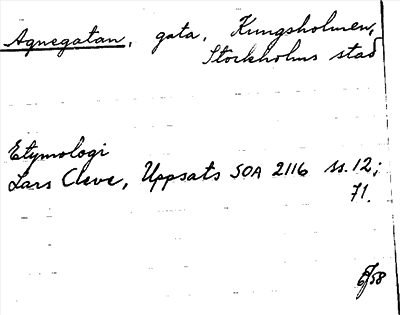 Agnegatan, gata, Kungsholmen,
Stockholms stad
Etymologi
Lars Cleve, Uppsats SOA 2116 ss. 12;
71.
6/58